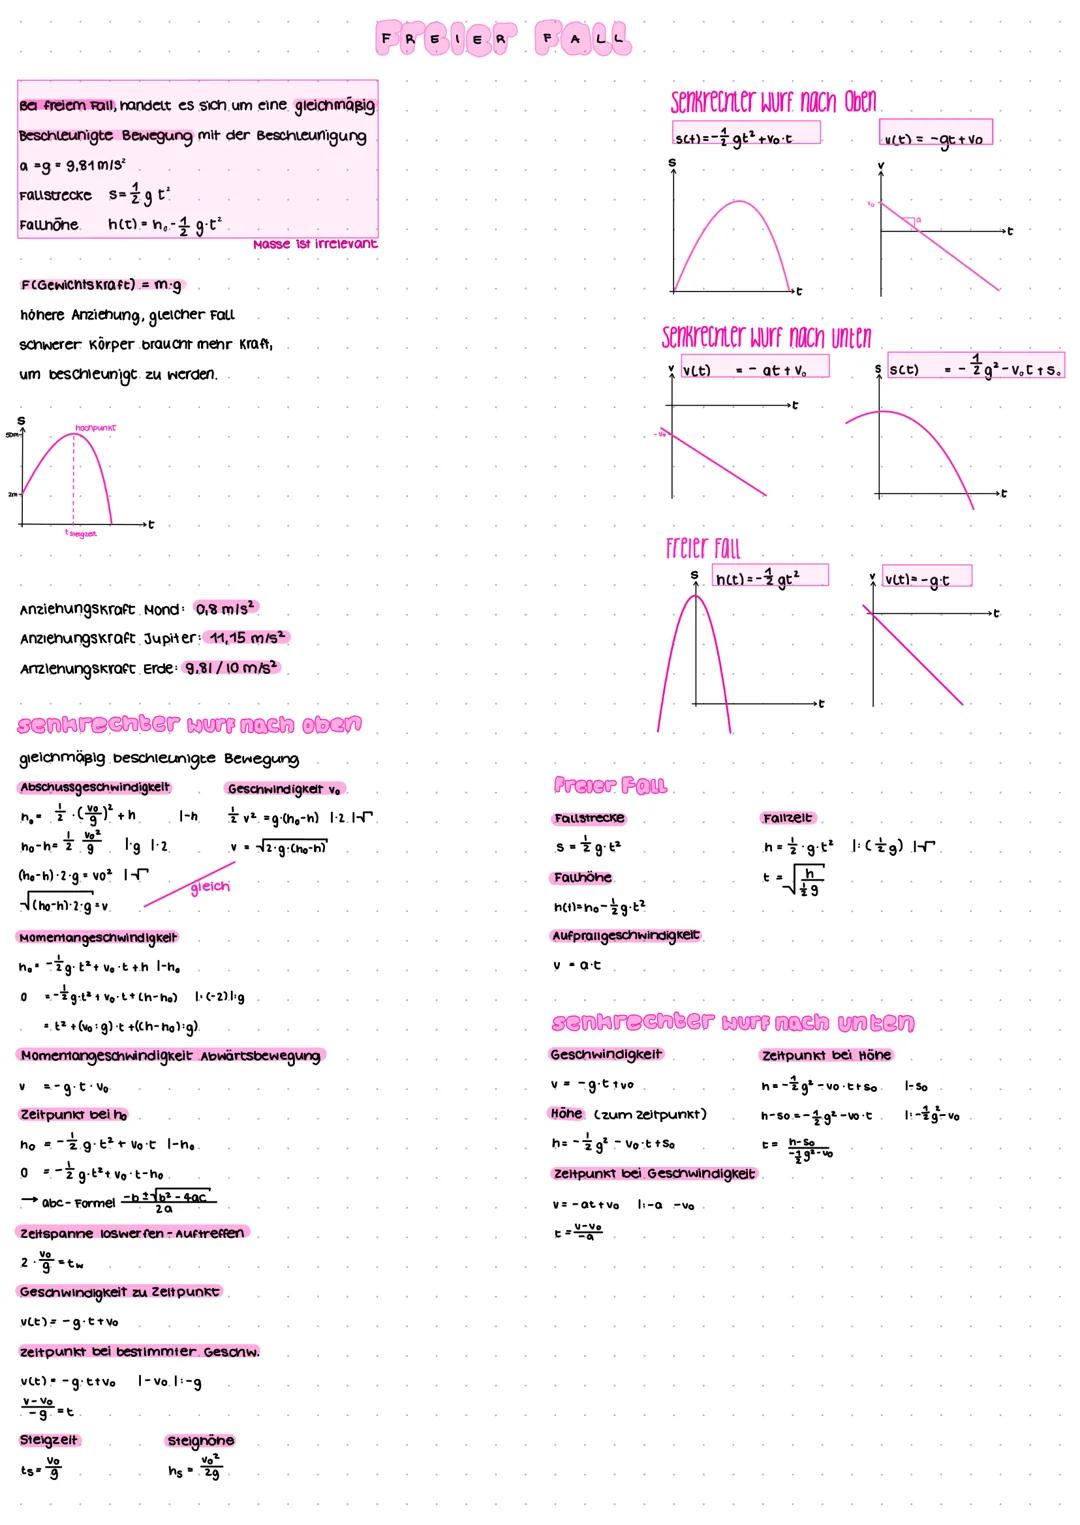 FREIER FALL
Bei freiem Fall, handelt es sich um eine gleichmäßig
Beschleunigte Bewegung mit der Beschleunigung
a = g = 9,81 m/s²
Fallstrecke s = 1/2 g t²
Fallhöhe h(t) = h₀ - 1/2 g·t²
Masse ist irrelevant
F(Gewichtskraft) = m·g
höhere Anziehung, gleicher Fall
schwerer Körper braucht mehr Kraft,
um beschleunigt zu werden.
s
50m
hochpunkt
2m
t
t steigzeit
Anziehungskraft Mond: 0,8 m/s²
Anziehungskraft Jupiter: 11,15 m/s²
Anziehungskraft Erde: 9,81 / 10 m/s²
senkrechter wurf nach oben
gleichmäßig beschleunigte Bewegung
Abschussgeschwindigkeit
h₀ = 1/2 · (v₀/g)² + h |-h
h₀-h = 1/2 v₀²/g |·g |·2
(h₀-h)·2·g = v₀² |√
√(h₀-h)·2·g = v
Geschwindigkeit v₀
1/2 v² = g·(h₀-h) |·2 |√
v = √2·g·(h₀-h)
gleich
Momentangeschwindigkeit
h₀ = -1/2 g·t² + v₀·t + h |-h₀
0 = -1/2 g·t² + v₀·t + (h-h₀) |·(-2) |:g
= t² + (v₀:g)·t + ((h-h₀):g)
Momentangeschwindigkeit Abwärtsbewegung
v = -g·t·v₀
Zeitpunkt bei h₀
h₀ = -1/2 g·t² + v₀·t |-h₀
0 = -1/2 g·t² + v₀·t-h₀
→ abc-Formel -b±√b²-4ac / 2a
Zeitspanne loswerfen - Auftreffen
2 · v₀/g = tw
Geschwindigkeit zu Zeitpunkt
v(t) = -g·t+v₀
zeitpunkt bei bestimmter Geschw.
v(t) = -g·t+v₀ |-v₀ |:-g
v-v₀/-g = t
Steigzeit
ts = v₀/g
Steighöhe
hs = v₀²/2g
Senkrechter Wurf nach Oben
s(t) = -1/2 gt² + v₀·t
v(t) = -gt + v₀
s
t
v
v₀
a
t
Senkrechter Wurf nach unten
v
v(t) = - at + v₀
t
-v₀
s
s(t) = -1/2 g² - v₀t + s₀
t
Freier Fall
s
h(t) = -1/2 gt²
t
v
v(t) = -g·t
t
Freier Fall
Fallstrecke
s = 1/2 g·t²
Fallhöhe
h(t) = h₀ - 1/2 g·t²
Aufprallgeschwindigkeit
v = a·t
Fallzeit
h = 1/2·g·t² |:(1/2 g) |√
t = √h / 1/2 g
senkrechter wurf nach unten
Geschwindigkeit
v = -g·t+v₀
Höhe (zum Zeitpunkt)
h = -1/2 g² - v₀·t+s₀
Zeitpunkt bei Geschwindigkeit
v = -at+v₀ |:-a -v₀
t = v-v₀/-a
Zeitpunkt bei Höhe
h = -1/2 g² - v₀·t+s₀ |-s₀
h-s₀ = -1/2 g² - v₀·t |:-1/2 g²-v₀
t = h-s₀ / -1/2 g²-v₀